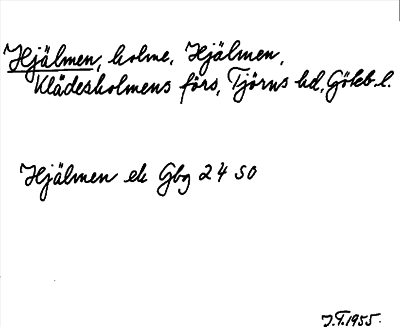 Hjälmen, holme, Hjälmen,
Klädesholmens förs, Tjörns hd, Göteb. l.
Hjälmen ek Gbg 24 SO
J.F. 1955.